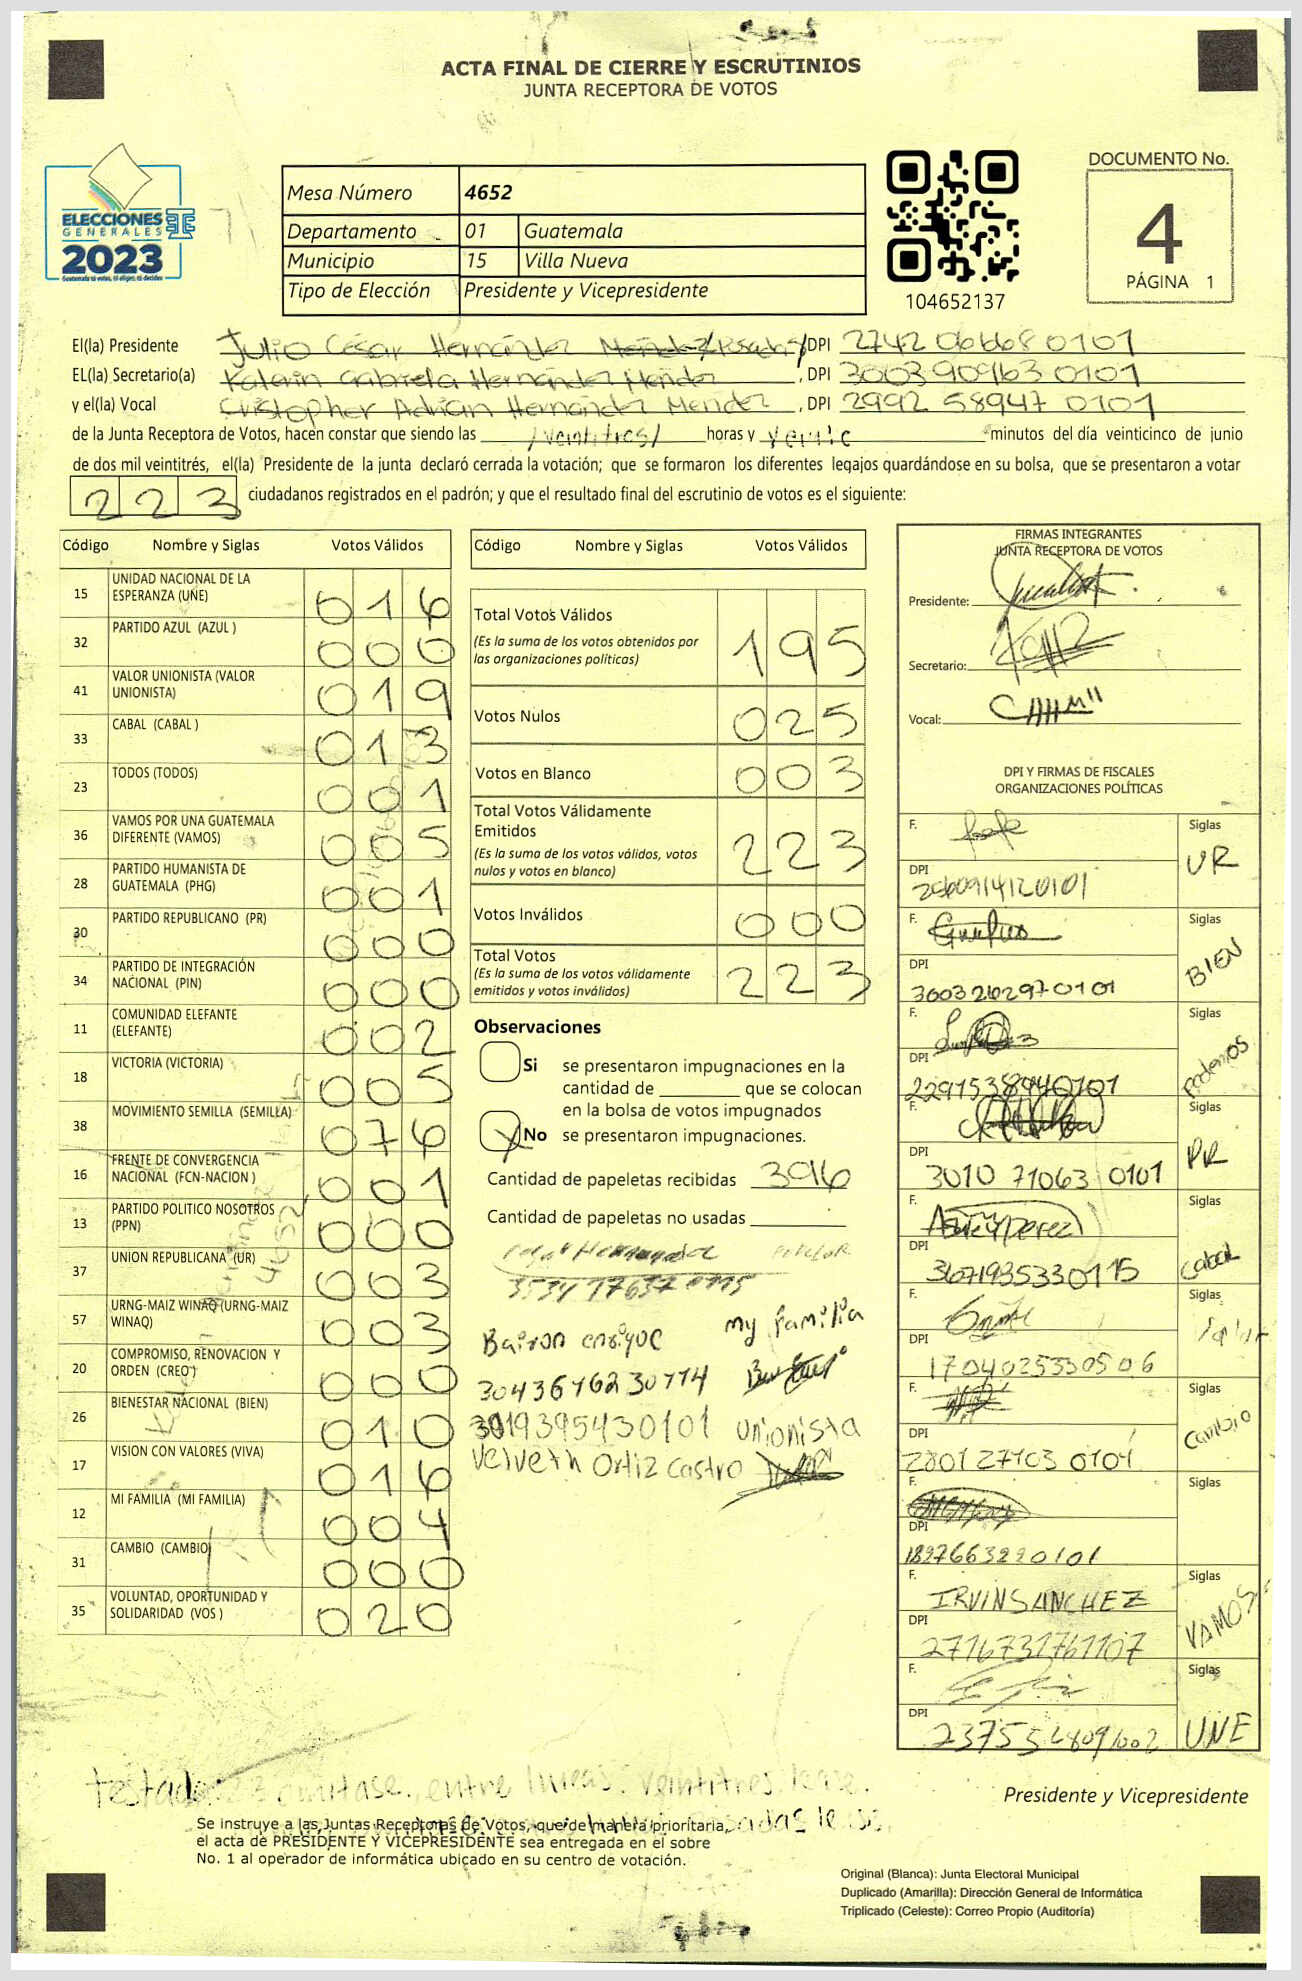 ACTA FINAL DE CIERRE Y ESCRUTINIOS
JUNTA RECEPTORA DE VOTOS
ELECCIONES
GENERALES
2023
Mesa Número 4652
Departamento 01 Guatemala
Municipio 15 Villa Nueva
Tipo de Elección Presidente y Vicepresidente
104652137
DOCUMENTO No.
4
PÁGINA 1
El(la) Presidente Julio César Hernández DPI 2742 06668 0101
EL(la) Secretario(a) Katerin Gabriela Hernández Méndez , DPI 3003 90963 0101
y el(la) Vocal Cristopher Adrian Hernández Mendez , DPI 2992 58947 0101
de la Junta Receptora de Votos, hacen constar que siendo las /veintitres/ horas y veinte minutos del día veinticinco de junio
de dos mil veintitrés, el(la) Presidente de la junta declaró cerrada la votación; que se formaron los diferentes legajos guardándose en su bolsa, que se presentaron a votar
223 ciudadanos registrados en el padrón; y que el resultado final del escrutinio de votos es el siguiente:
Código Nombre y Siglas Votos Válidos
15 UNIDAD NACIONAL DE LA ESPERANZA (UNE) 016
32 PARTIDO AZUL (AZUL ) 000
41 VALOR UNIONISTA (VALOR UNIONISTA) 019
33 CABAL (CABAL ) 013
23 TODOS (TODOS) 001
36 VAMOS POR UNA GUATEMALA DIFERENTE (VAMOS) 005
28 PARTIDO HUMANISTA DE GUATEMALA (PHG) 001
30 PARTIDO REPUBLICANO (PR) 000
34 PARTIDO DE INTEGRACIÓN NACIONAL (PIN) 000
11 COMUNIDAD ELEFANTE (ELEFANTE) 002
18 VICTORIA (VICTORIA) 005
38 MOVIMIENTO SEMILLA (SEMILLA) 076
16 FRENTE DE CONVERGENCIA NACIONAL (FCN-NACION ) 001
13 PARTIDO POLITICO NOSOTROS (PPN) 000
37 UNION REPUBLICANA (UR) 003
57 URNG-MAIZ WINAQ (URNG-MAIZ WINAQ) 003
20 COMPROMISO, RENOVACION Y ORDEN (CREO ) 000
26 BIENESTAR NACIONAL (BIEN) 010
17 VISION CON VALORES (VIVA) 016
12 MI FAMILIA (MI FAMILIA) 004
31 CAMBIO (CAMBIO) 000
35 VOLUNTAD, OPORTUNIDAD Y SOLIDARIDAD (VOS ) 020
Código Nombre y Siglas Votos Válidos
Total Votos Válidos 195
(Es la suma de los votos obtenidos por
las organizaciones políticas)
Votos Nulos 025
Votos en Blanco 003
Total Votos Válidamente
Emitidos 223
(Es la suma de los votos válidos, votos
nulos y votos en blanco)
Votos Inválidos 000
Total Votos 223
(Es la suma de los votos válidamente
emitidos y votos inválidos)
Observaciones
Si se presentaron impugnaciones en la
cantidad de ________ que se colocan
en la bolsa de votos impugnados
X No se presentaron impugnaciones.
Cantidad de papeletas recibidas 396
Cantidad de papeletas no usadas
Bairon enrique my familia
3043676230114
3019395430101 unionista
Velveth Ortiz Castro
FIRMAS INTEGRANTES
JUNTA RECEPTORA DE VOTOS
Presidente:
Secretario:
Vocal:
DPI Y FIRMAS DE FISCALES
ORGANIZACIONES POLÍTICAS
F. Siglas UR
DPI 2560914120101
F. Siglas BIEN
DPI 3003262970101
F. Siglas Podemos
DPI 2291538940101
F. Siglas PR
DPI 3010 71063 0101
F. Siglas Cabal
DPI 3671935330115
F. Siglas
DPI 1704025330506
F. Siglas Cambio
DPI 2801 27103 0101
F. Siglas
DPI 1897663290101
F. IRVIN SANCHEZ Siglas VAMOS
DPI 2716731761107
F. Siglas UNE
DPI
Testado: 23 omitase. entre lineas: veintitres. lease.
Presidente y Vicepresidente
Se instruye a las Juntas Receptoras de Votos, que de manera prioritaria,
el acta de PRESIDENTE Y VICEPRESIDENTE sea entregada en el sobre
No. 1 al operador de informática ubicado en su centro de votación.
Original (Blanca): Junta Electoral Municipal
Duplicado (Amarilla): Dirección General de Informática
Triplicado (Celeste): Correo Propio (Auditoría)